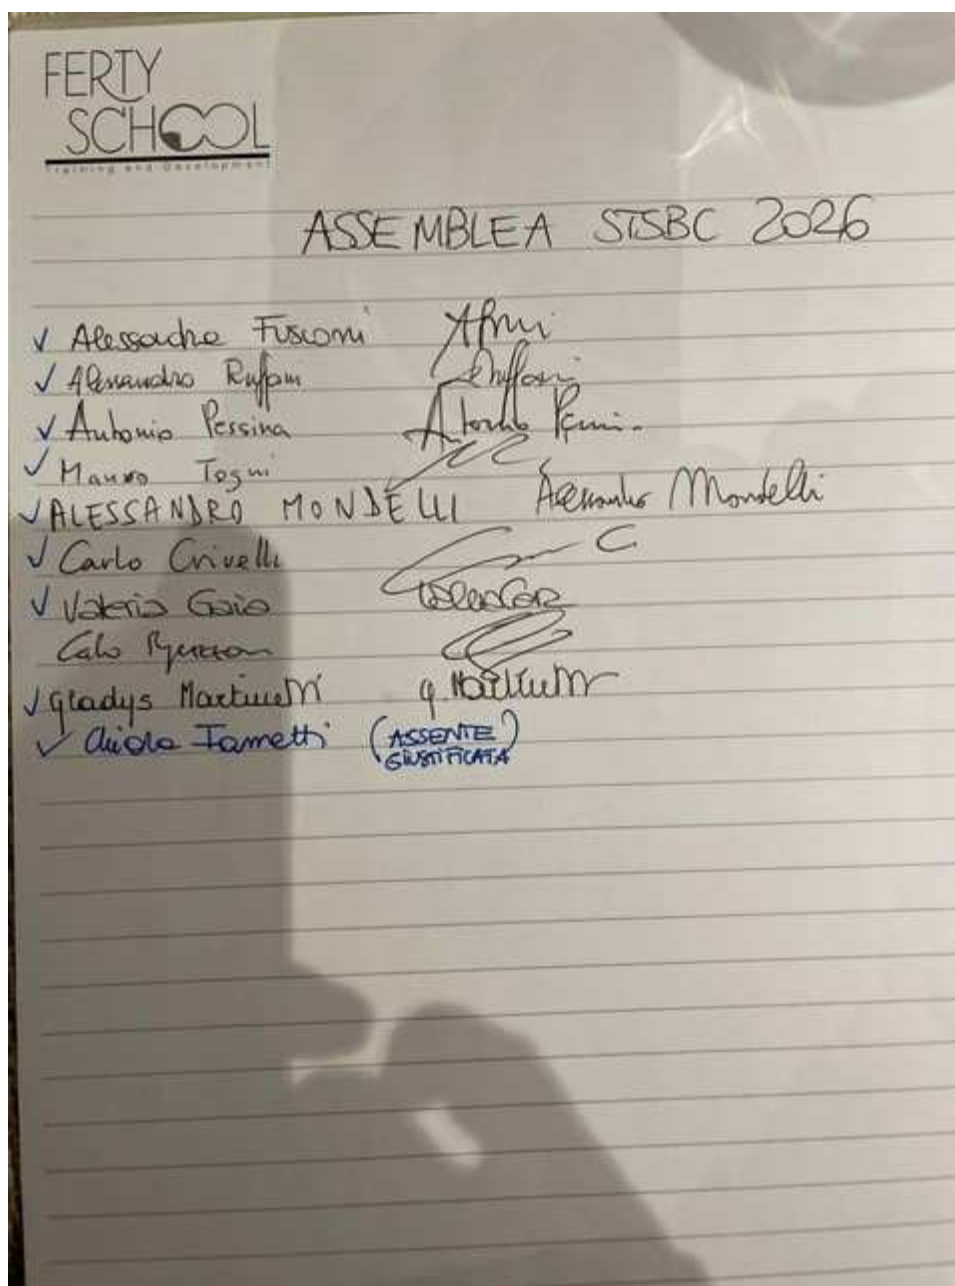 FERTY
SCHOOL
Training and Development
ASSEMBLEA STSBC 2026
✓ Alessandra Fusconi
✓ Alessandro Ruffoni
✓ Antonio Pessina
✓ Mauro Togni
✓ ALESSANDRO MONDELLI Alessandro Mondelli
✓ Carlo Crivelli
✓ Valeria Gaia
✓ Gladys Martinetti G. Martinetti
✓ Iametti (ASSENTE
GIUSTIFICATA)